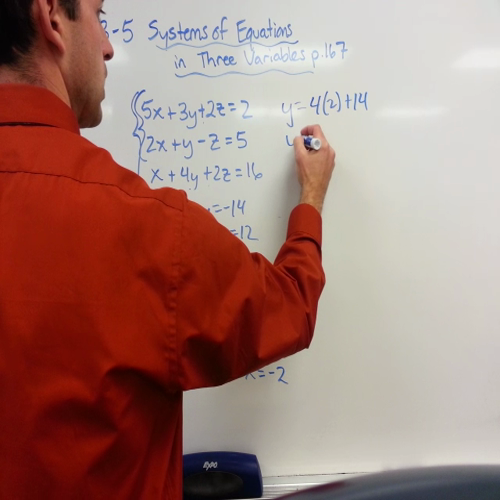 3-5 Systems of Equations
in Three Variables p.167
5x+3y+2z=2
2x+y-z=5
x+4y+2z=16
=-14
=12
x=-2
y=4(2)+14
EXPO